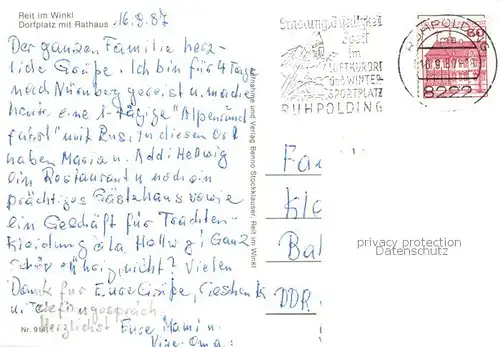 Reit im Winkl
Dorfplatz mit Rathaus
16.9.87
Der ganzen Familie herz-
liche Grüße. Ich bin für 4 Tage
nach Nürnberg gereist u. mache
heute eine 1-tägige "Alpenrund
fahrt" mit Bus, in diesen Ort
haben Maria u. Addi Hellwig
ein Restaurant u noch ein
prächtiges Gästehaus sowie
ein Geschäft für Trachten-
kleidung à la Hellwig! Ganz
schön, nicht? Vielen
Dank für Eure Grüße, Geschenk
u. Telefongespräch.
Herzlichst Eure Mami u.
Oma
Nr. 914
Verlag Benno Stockklauser, Reit im Winkl
Erholung, Gastlichkeit
Sport
im
LUFTKURORT
UND WINTER
SPORTPLATZ
RUHPOLDING
RUHPOLDING
8222
60
Fa
Kl
Ba
DDR
privacy protection
Datenschutz